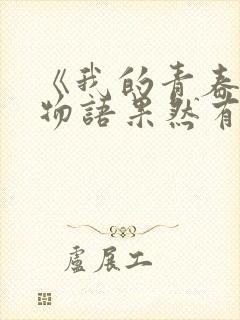 《我的青春
物語果然有
盧展工